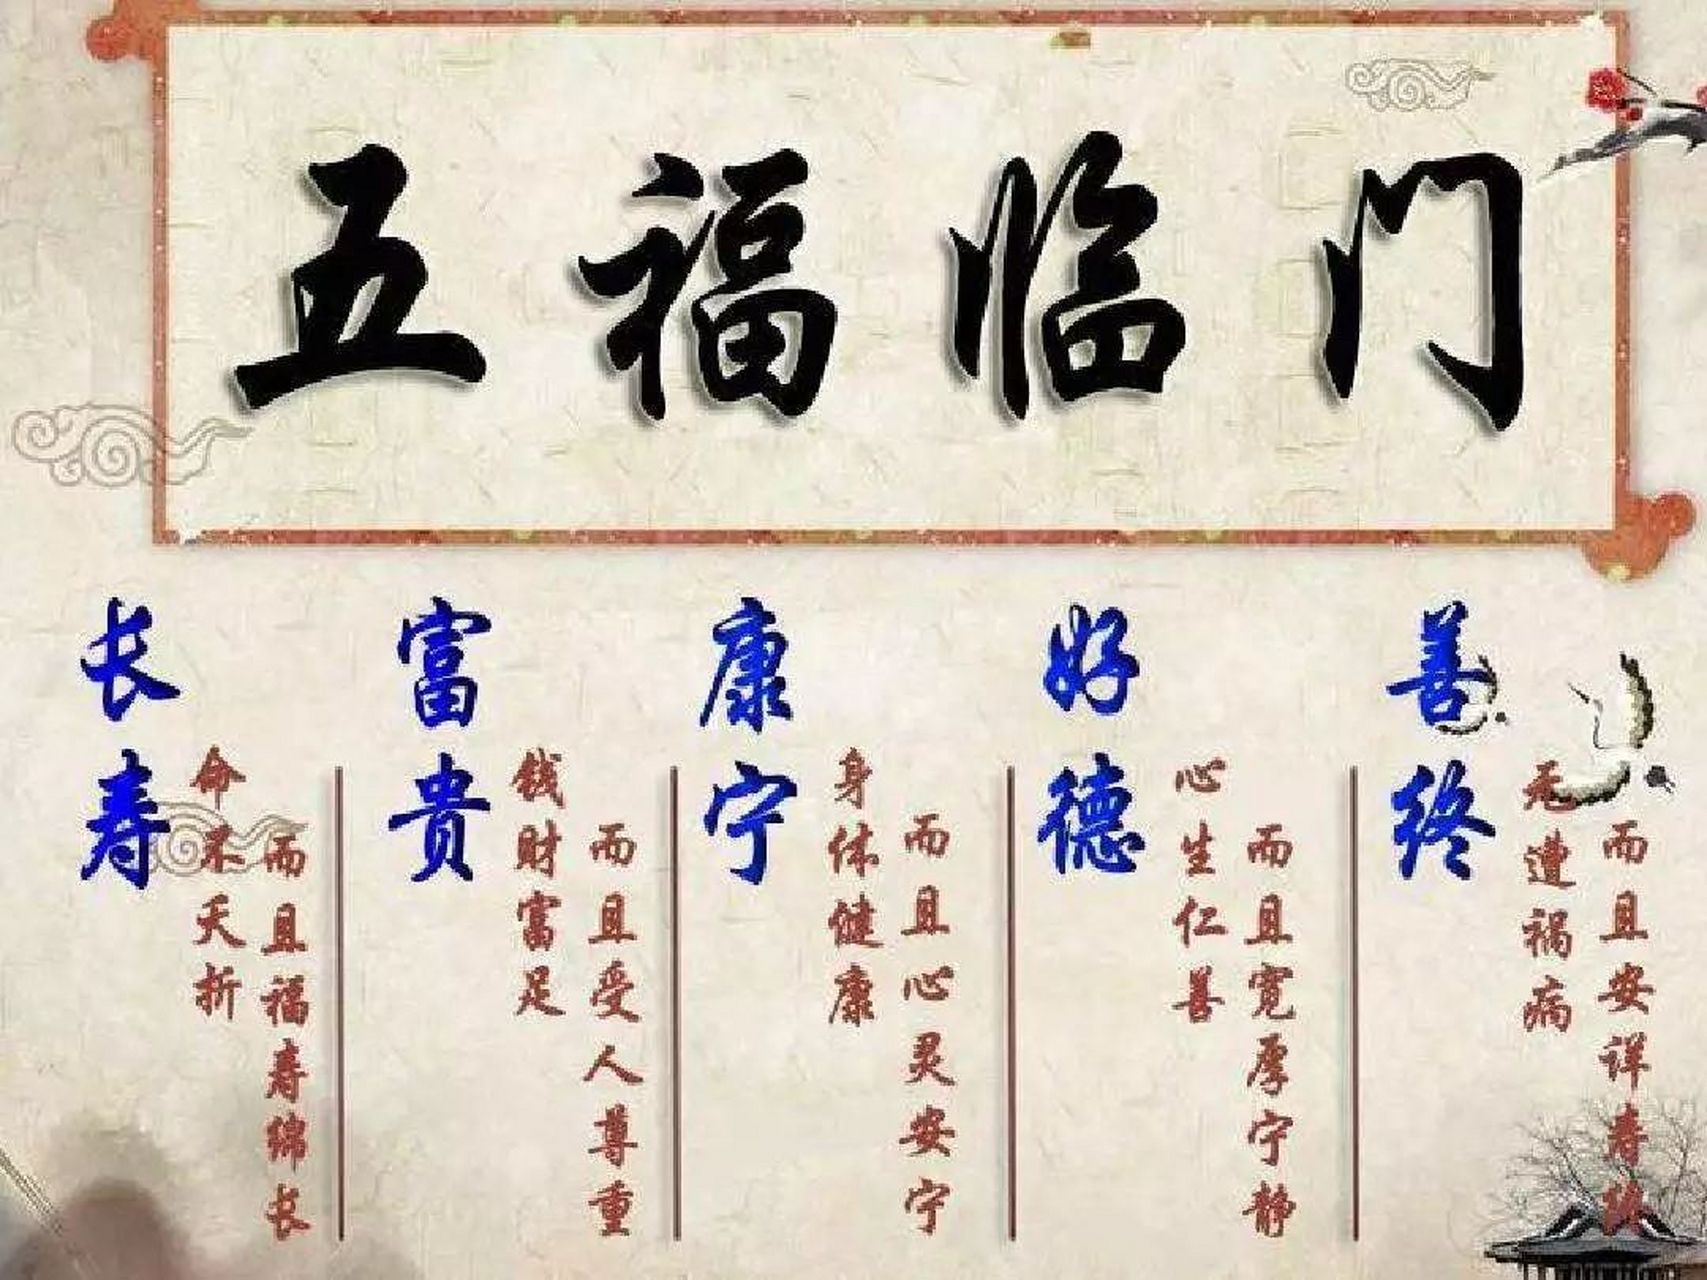 五福临门
长寿
命不夭折
而且福寿绵长
富贵
钱财富足
而且受人尊重
康宁
身体健康
而且心灵安宁
好德
心生仁善
而且宽厚宁静
善终
无遭祸病
而且安详寿终